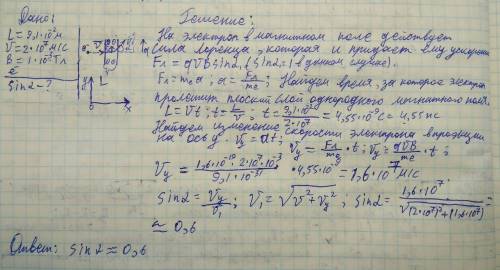 Дано:
L = 9,1·10⁻² м
V = 2·10⁷ м/с
B = 1·10⁻³ Тл
ē
sin2 - ?
L
y
x
Решение:
На электрон в магнитном поле действует
сила Лоренца, которая и придаёт ему ускорен
Fл = qVB sin2, (sin2 = 1 в данном случае).
Fл = mea; a = Fл/me; Найдем время, за которое электрон
пролетит плоский слой однородного магнитного поля.
L = Vt; t = L/V; t = 9,1·10⁻²/2·10⁷ = 4,55·10⁻⁹ с = 4,55 нс
Найдем изменение скорости электрона в проекции
на ось y. Vy = at; Vy = Fл/me · t; Vy = qVB/me · t;
Vy = 1,6·10⁻¹⁹·2·10⁷·10⁻³/9,1·10⁻³¹ · 4,55·10⁻⁹ = 1,6·10⁷ м/с
sin2 = Vy/V₁; V₁ = √V² + Vy²; sin2 = 1,6·10⁷/√(2·10⁷)² + (1,6·10⁷)² =
≈ 0,6
Ответ: sin2 ≈ 0,6